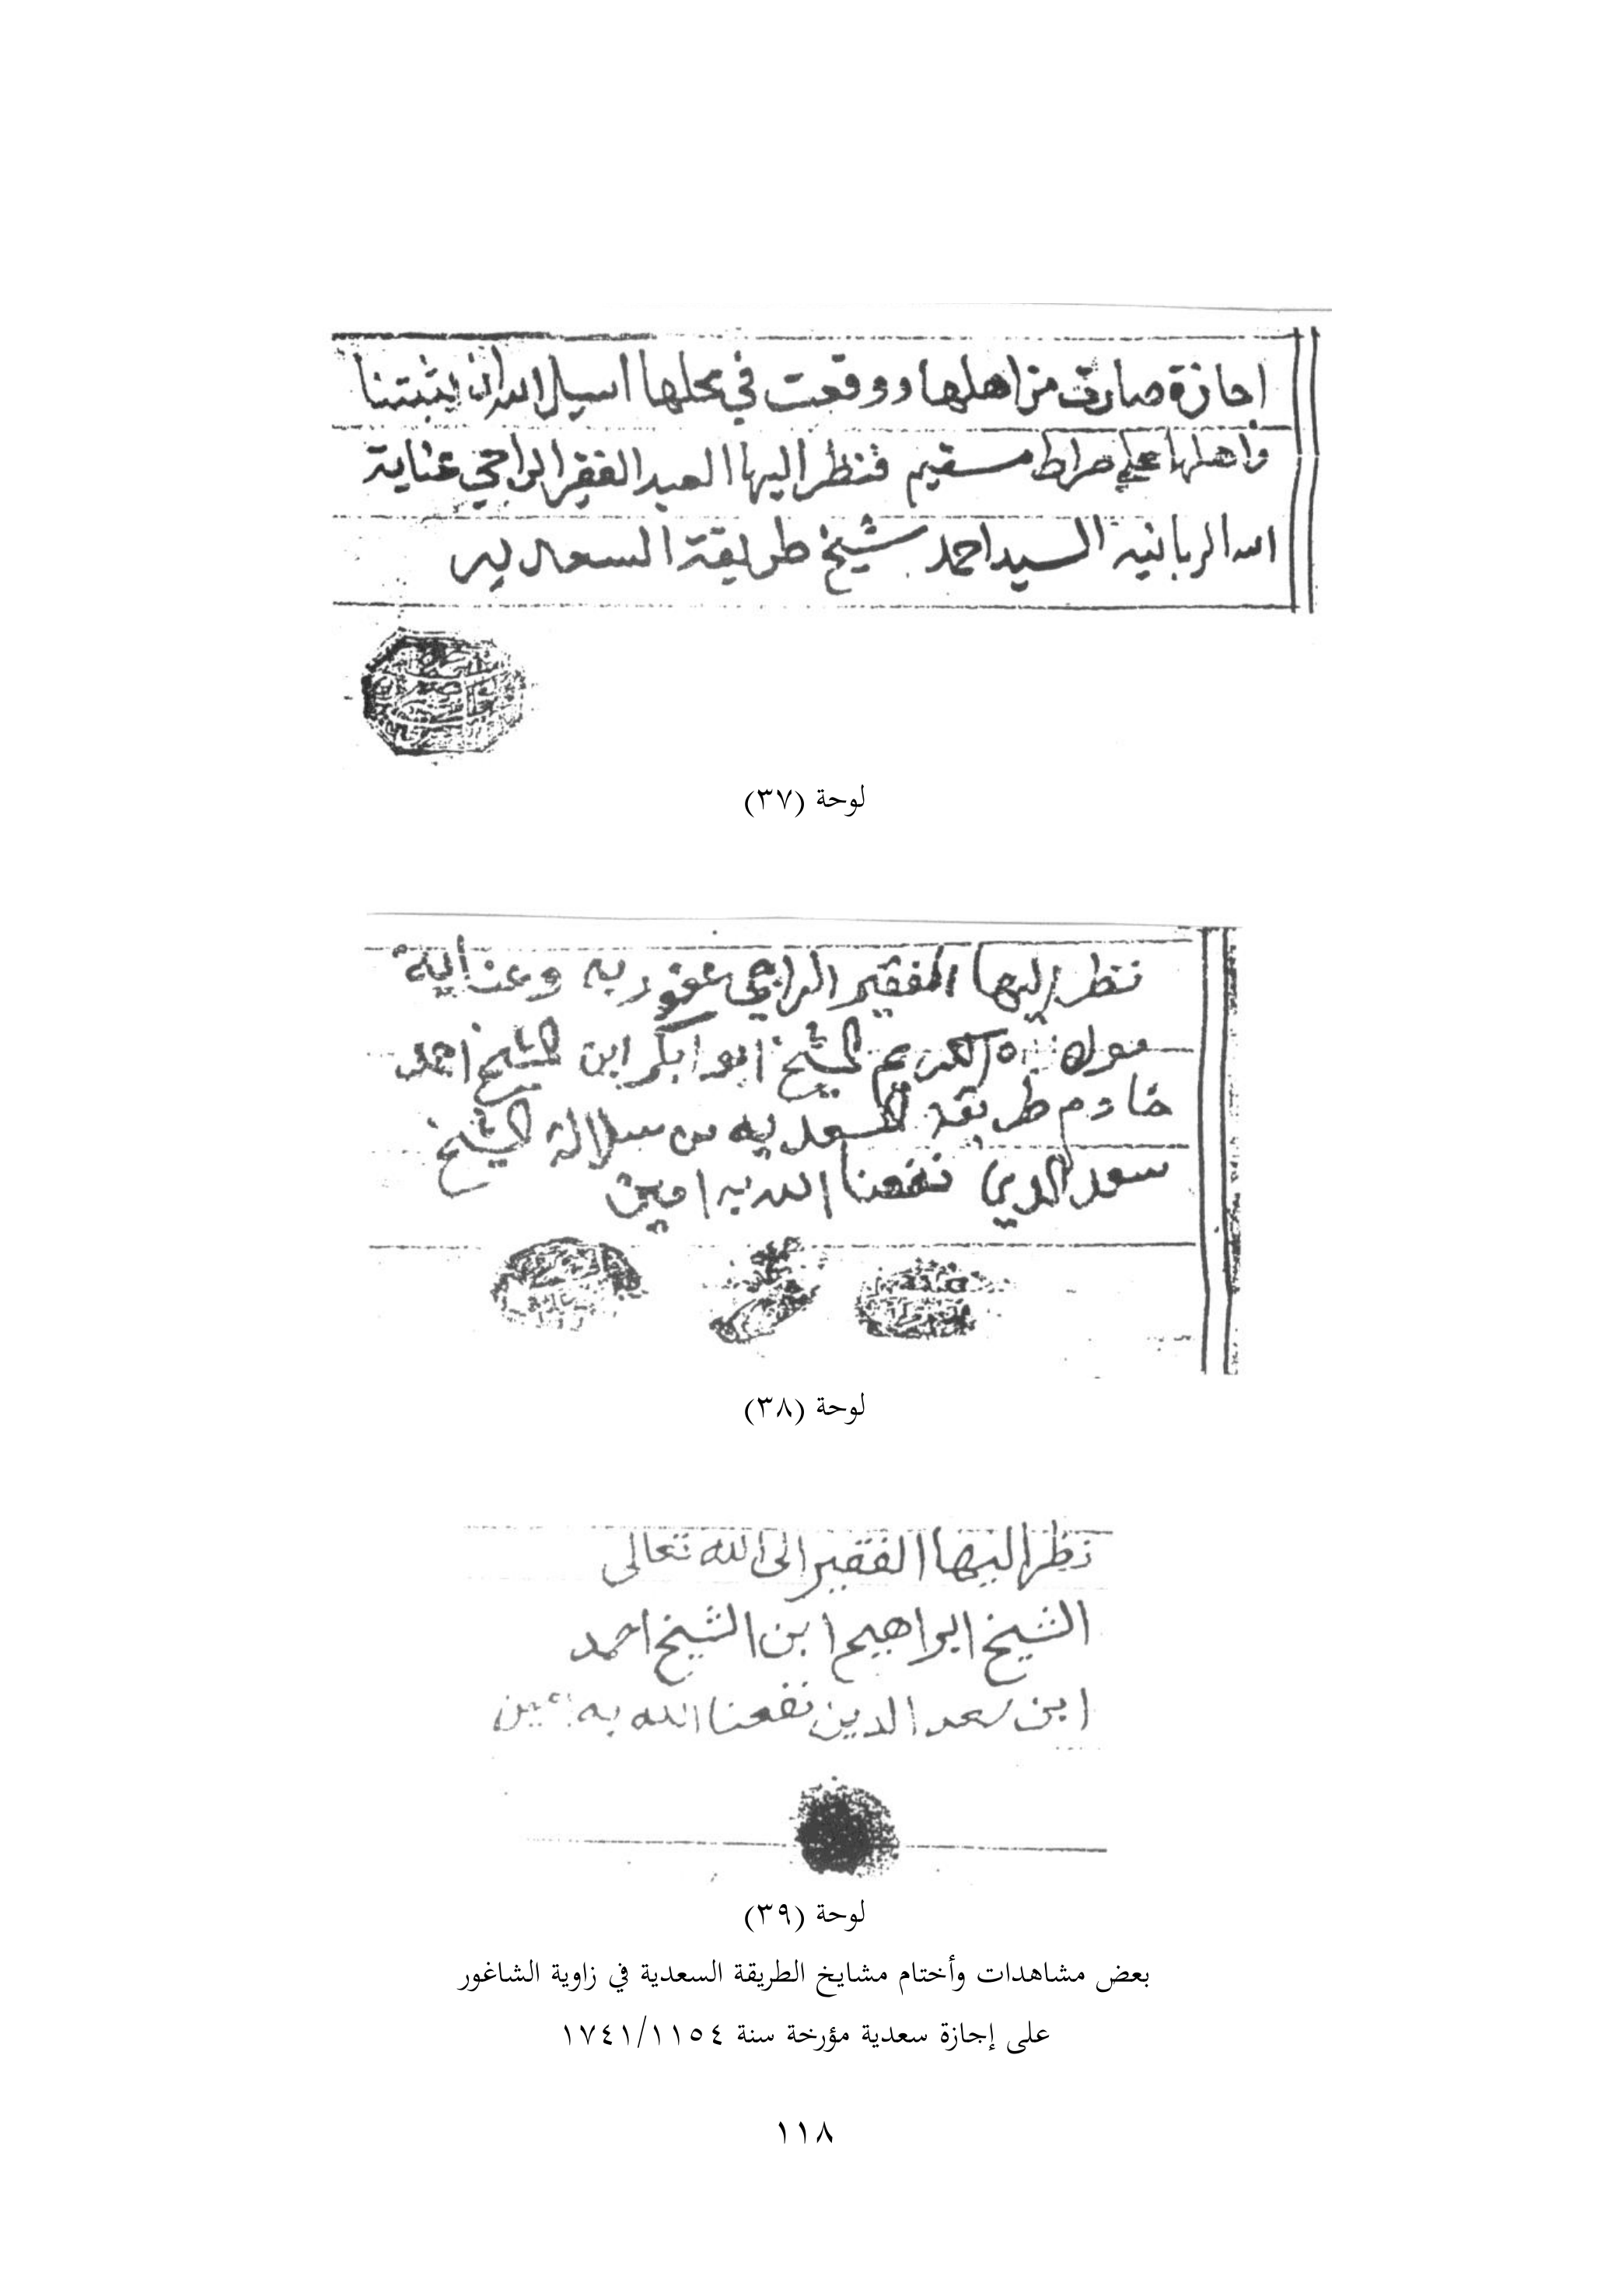 اجازة صادرة من اهلها ووقعت في محلها اسيل الله ان يثبتنا
واهلها على صراط مسقيم فنظر اليها العبد الفقر الراجي عناية
الله الربانيه السيد احمد شيخ طريقة السعديه
لوحة (٣٧)
نظر اليها الفقير الراجي عفو ربه وعناية
مولاه الكريم الشيخ ابو ابكر ابن الشيخ احمد
خادم طريقة السعديه من سلالة الشيخ
سعد الدين نفعنا الله به امين
لوحة (٣٨)
نظر اليها الفقير الى الله تعالى
الشيخ ابراهيم ابن الشيخ احمد
ابن سعد الدين نفعنا الله به امين
لوحة (٣٩)
بعض مشاهدات وأختام مشايخ الطريقة السعدية في زاوية الشاغور
على إجازة سعدية مؤرخة سنة ١٧٤١/١١٥٤
١١٨